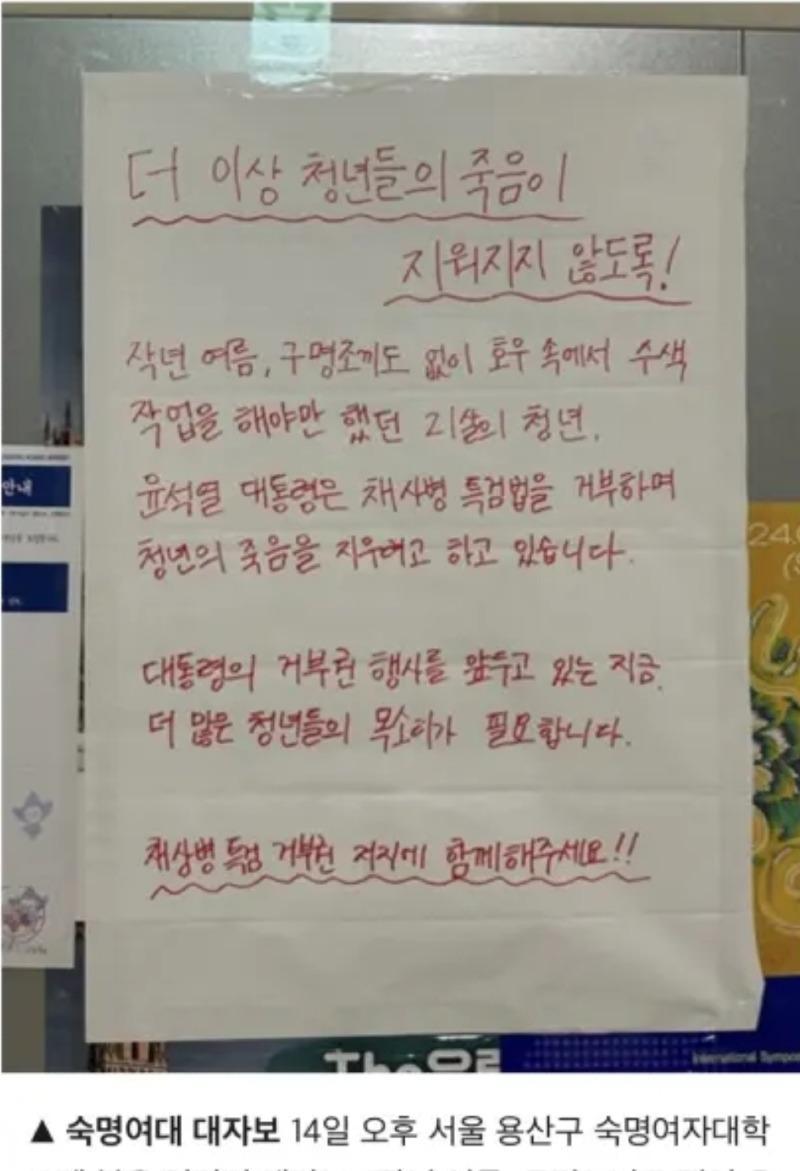 더 이상 청년들의 죽음이
지워지지 않도록!
작년 여름, 구명조끼도 없이 호우 속에서 수색
작업을 해야만 했던 21살의 청년.
윤석열 대통령은 채상병 특검법을 거부하며
청년의 죽음을 지우려고 하고 있습니다.
대통령의 거부권 행사를 앞두고 있는 지금.
더 많은 청년들의 목소리가 필요합니다.
채상병 특검 거부권 저지에 함께해주세요!!
안내
24.
The
International Sympo
▲ 숙명여대 대자보 14일 오후 서울 용산구 숙명여자대학